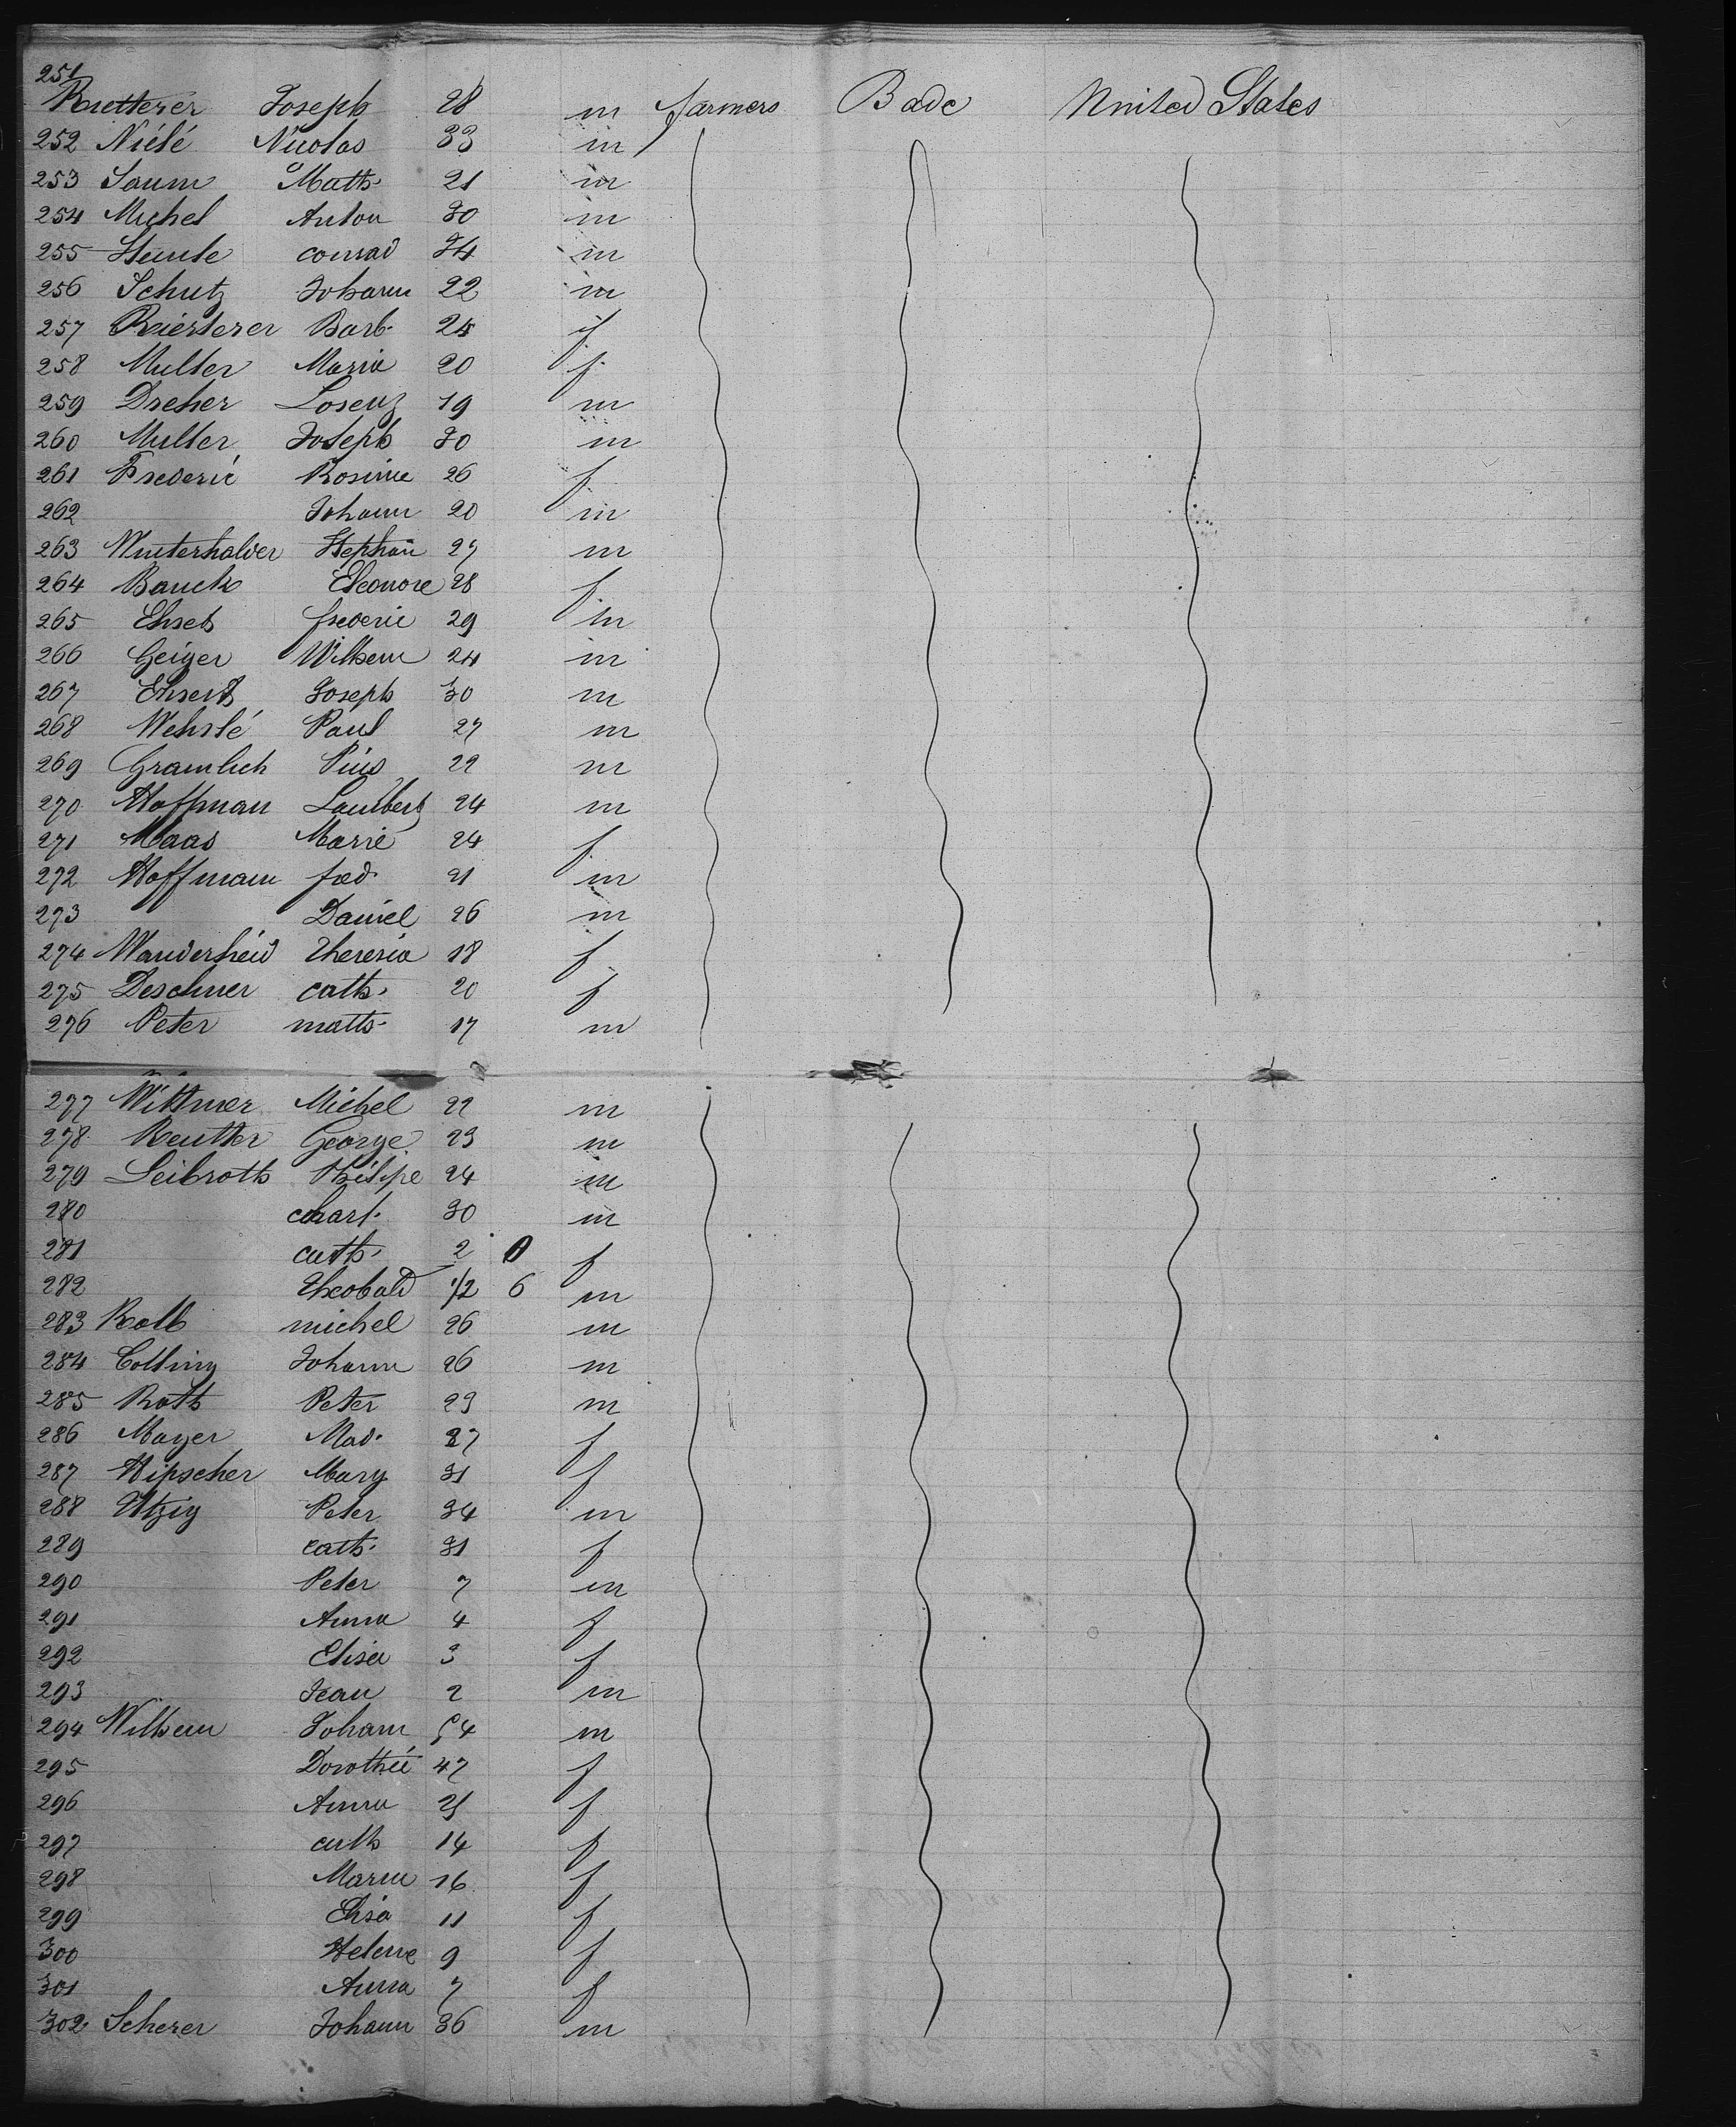 251
Ruetterer Joseph 28 m farmers Bade United States
252 Niélé Nicolas 33 m
253 Saum Math. 21 m
254 Michel Anton 30 m
255 Steinle conrad 34 m
256 Schutz Johann 22 m
257 Riersterer Barb. 24 f
258 Muller Maria 20 f
259 Dreher Lorenz 19 m
260 Muller Joseph 30 m
261 Frederic Rosine 26 f
262 Johann 20 m
263 Winterhalder Stephan 27 m
264 Bauch Eleonore 28 f
265 Ehret frederic 29 m
266 Geiger Wilhem 24 m
267 Joseph 30 m
268 Wehrlé Paul 27 m
269 Gramlich Pius 22 m
270 Hoffman Lambert 24 m
271 Maas Marie 24 f
272 Hoffmann fred. 21 m
273 Daniel 26 m
274 Wanderheid Theresia 18 f
275 Deschner cath. 20 f
276 Peter math. 17 m
277 Wittmer Michel 22 m
278 Reutter George 23 m
279 Leibroth Philipe 24 m
280 charl. 30 m
281 cath. 2 f
282 Theobald 1/2 6 m
283 Kolb michel 26 m
284 Colling Johann 26 m
285 Roth Peter 23 m
286 Mayer Mad. 27 f
287 Hipscher Mary 31 f
288 Utzig Peter 34 m
289 cath. 31 f
290 Peter 7 m
291 Anna 4 f
292 Elisa 3 f
293 Jean 2 m
294 Wilhem Johann 54 m
295 Dorothée 47 f
296 Anna 21 f
297 cath 14 f
298 Maria 16 f
299 Elisa 11 f
300 Helene 9 f
301 Anna 7 f
302 Scherer Johann 36 m